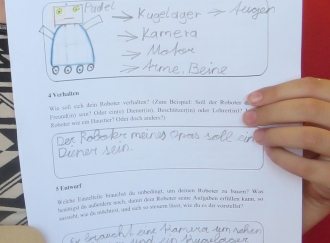 Pudel
→ Kugelager → Augen
→ Kamera
→ Motor
→ Arme, Beine
4 Verhalten
Wie soll sich dein Roboter verhalten? (Zum Beispiel: Soll der Roboter
Freund(in) sein? Oder ein(e) Diener(in), Beschützer(in) oder Lehrer(in)?
Roboter wie ein Haustier? Oder doch anders?)
Der Roboter meines Opas soll ein
Diener sein.
5 Entwurf
Welche Einzelteile brauchst du unbedingt, um deinen Roboter zu bauen? Was
benötigst du außerdem noch, damit dein Roboter seine Aufgaben erfüllen kann, so
aussieht, wie du möchtest, und sich so steuern lässt, wie du es dir vorstellst?
Er braucht eine Kamera um sehen
und ein Kugelager